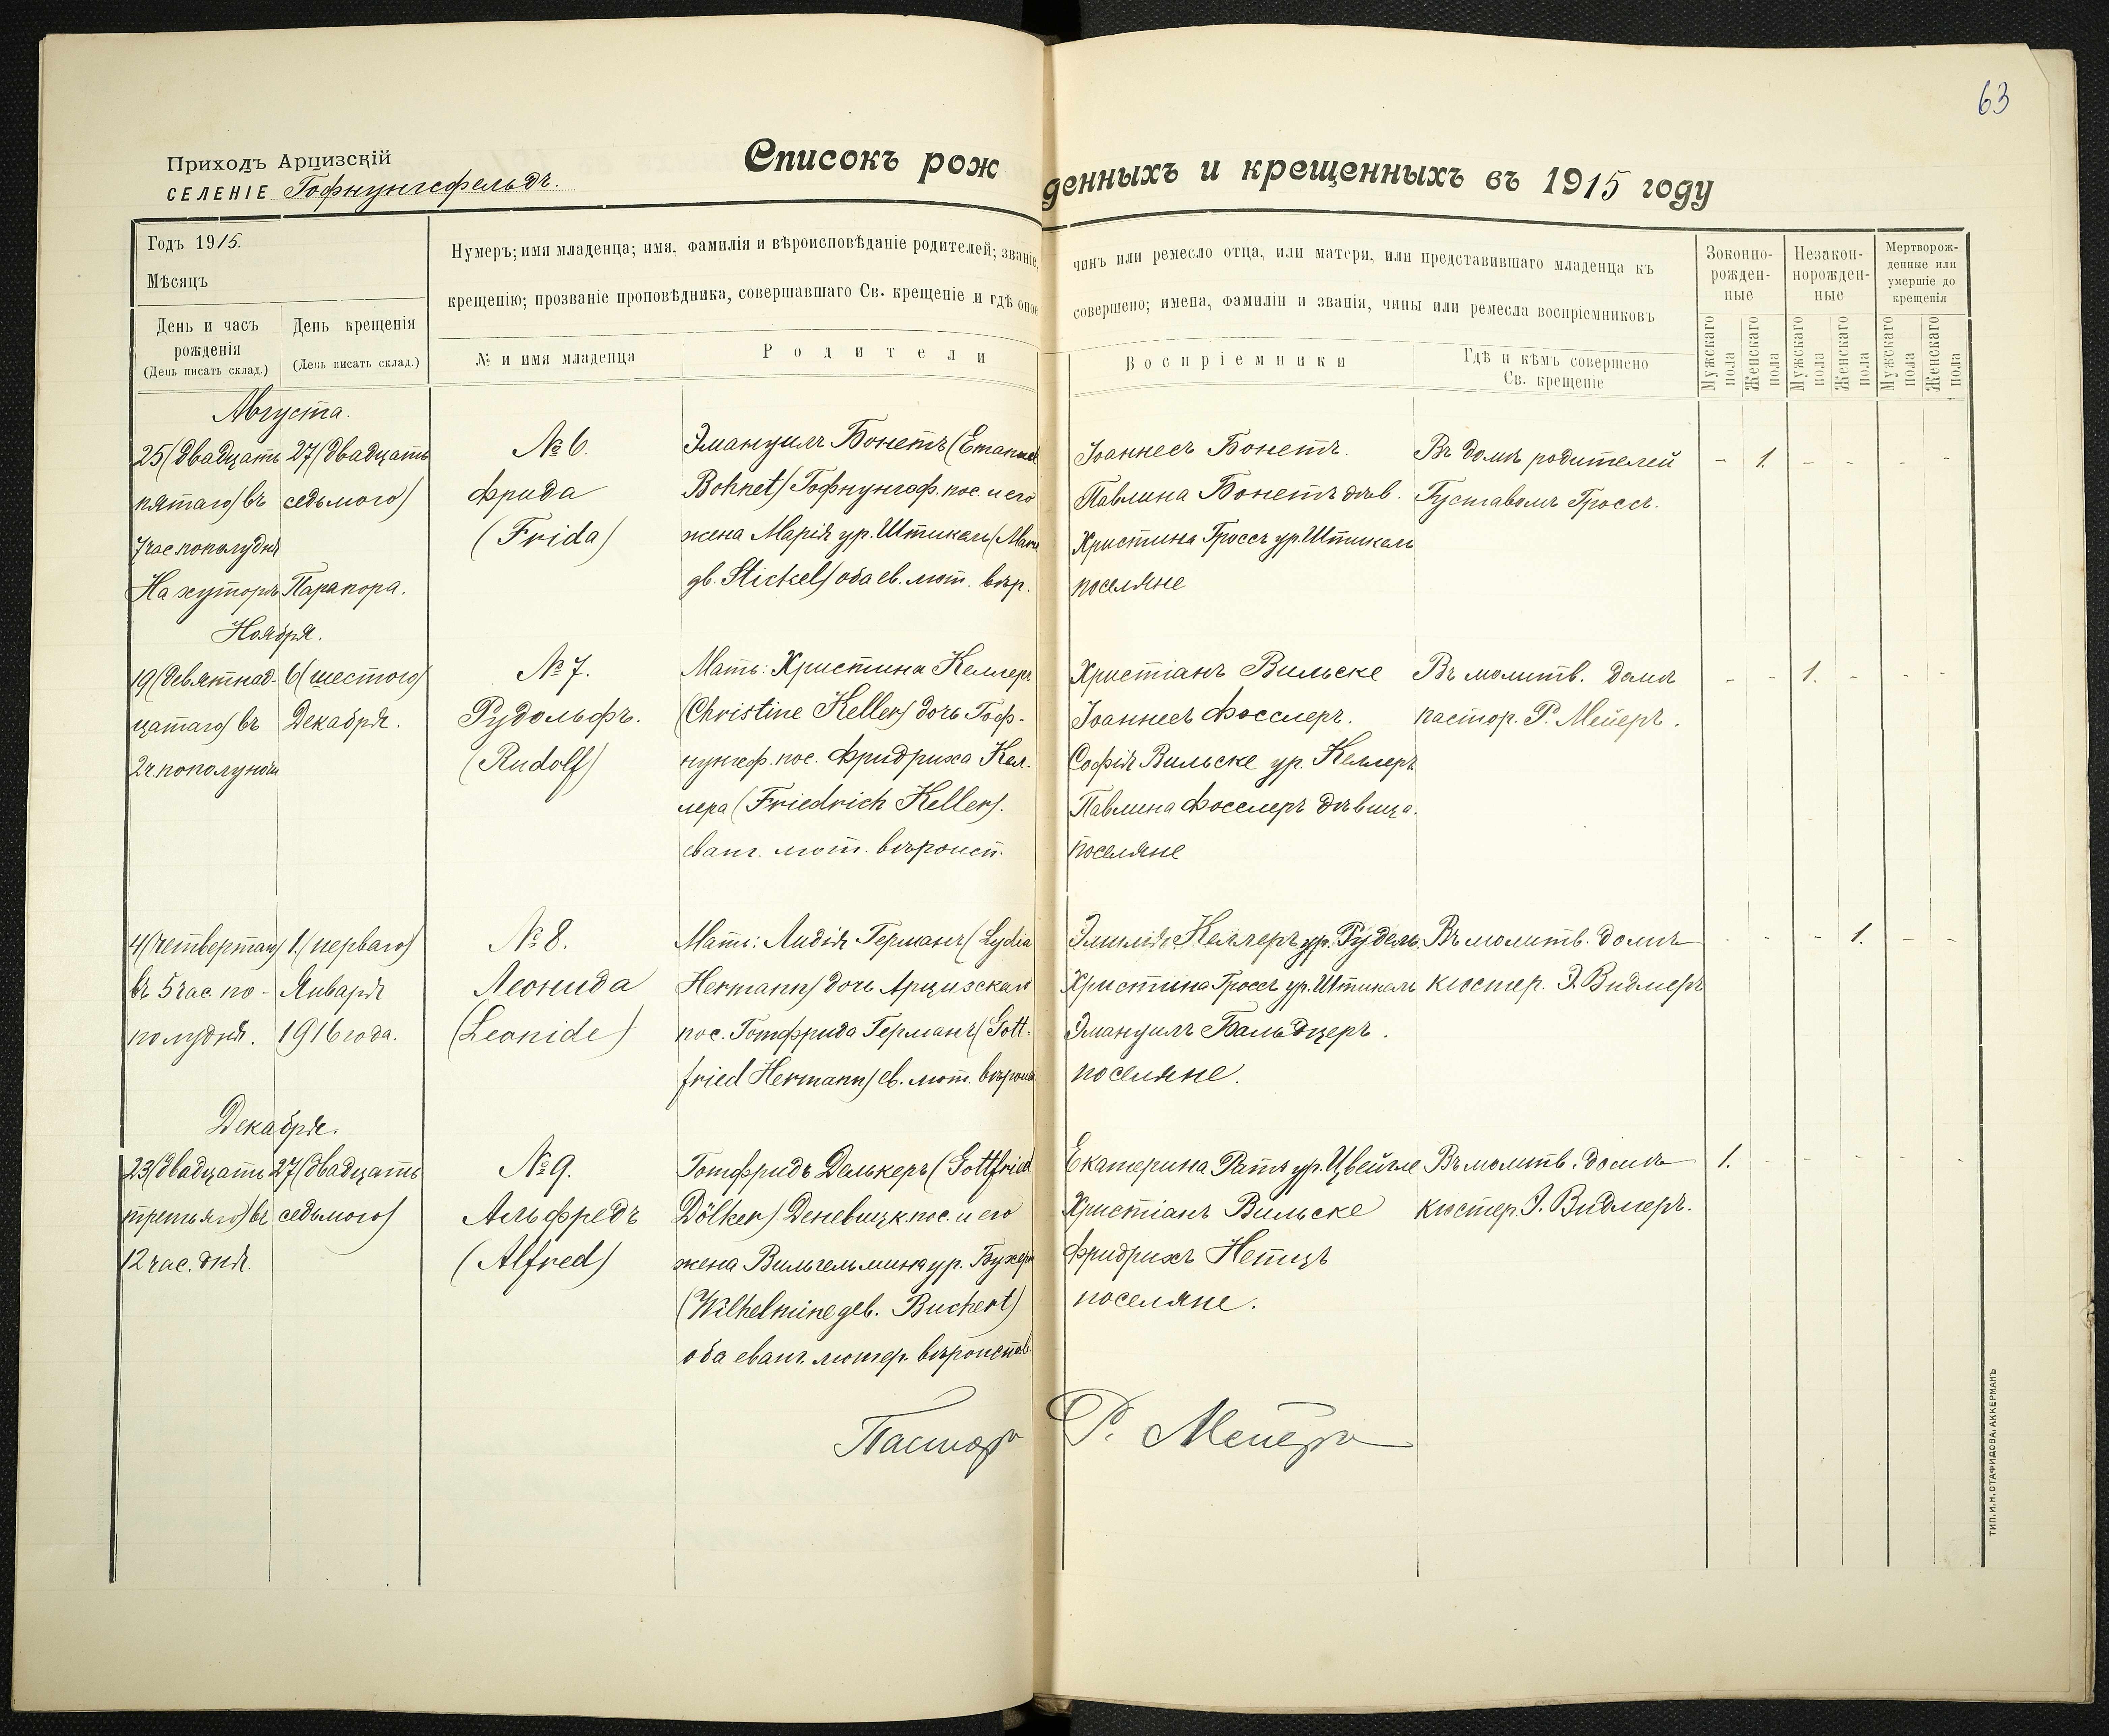 63
Приходъ Арцизскій
СЕЛЕНІЕ Гофнунгсфельдъ.
Списокъ рожденныхъ и крещенныхъ въ 1915 году
Годъ 1915.
Мѣсяцъ
День и часъ рожденія
(День писать склад.)
День крещенія
(День писать склад.)
Нумеръ; имя младенца; имя, фамилія и вѣроисповѣданіе родителей; званіе, чинъ или ремесло отца, или матери, или представившаго младенца къ
крещенію; прозваніе проповѣдника, совершавшаго Св. крещеніе и гдѣ оное совершено; имена, фамиліи и званія, чины или ремесла воспріемниковъ
№ и имя младенца
Родители
Воспріемники
Гдѣ и кѣмъ совершено
Св. крещеніе
Зоконно-
рожден-
ные
Незакон-
норожден-
ные
Мертворож-
денные или
умершіе до
крещенія
Мужскаго пола
Женскаго пола
Мужскаго пола
Женскаго пола
Мужскаго пола
Женскаго пола
Августа.
25 (двадцать
пятаго) въ
7 час. пополудня
На хуторѣ Парапора.
27 (двадцать
седьмого)
№ 6.
Фрида
(Frida)
Эмануилъ Бонетъ (Emanuel
Bohnet) Гофнунгсф. пос. и его
жена Марія ур. Штикель (Maria
gb. Stickel) оба ев. лют. вѣр.
Іоаннесъ Бонетъ.
Павлина Бонетъ дѣв.
Христина Гроссъ ур. Штикель
поселяне
Въ домѣ родителей
Густавомъ Гроссъ.
- 1. - - - -
Ноября.
19 (девятнад-
цатаго) въ
2 ч. пополуночи
6 (шестого)
Декабря.
№ 7.
Рудольфъ.
(Rudolf)
Мать: Христина Келлеръ
(Christine Keller) дочь Гоф-
нунгсф. пос. Фридриха Кел-
лера (Friedrich Keller).
еванг. лют. вѣроисп.
Христіанъ Вильске
Іоаннесъ Фосслеръ.
Софія Вильске ур. Келлеръ
Павлина Фосслеръ дѣвица.
поселяне
Въ молитв. домѣ
пастор. Р. Мейеръ.
- - 1. - - -
4 (четвертаго)
въ 5 час. по-
полудня.
1. (перваго)
Января
1916 года.
№ 8.
Леонида
(Leonide)
Мать: Лидія Германъ (Lydia
Hermann) дочь Арцизскаго
пос. Готфрида Германъ (Gott-
fried Hermann) ев. лют. вѣроисп.
Эмилія Келлеръ ур. Рудель.
Христина Гроссъ ур. Штикель
Эмануилъ Бальдцеръ.
поселяне.
Въ молитв. домѣ
кюстер. Э. Видмеръ
- - - 1. - -
Декабря.
23 (двадцать
третьяго) въ
12 час. дня.
27 (двадцать
седьмого)
№ 9.
Альфредъ
(Alfred)
Готфридъ Делькеръ (Gottfried
Dölker) Деневицк. пос. и его
жена Вильгельмина ур. Бухертъ
(Wilhelmine geb. Buchert)
оба еванг. лютер. вѣроиспов.
Екатерина Ратъ ур. Цвейгле
Христіанъ Вильске
Фридрихъ Нетцъ
поселяне.
Въ молитв. домѣ
кюстер. Э. Видмеръ.
1. - - - - -
Пасторъ Р. Мейеръ
ТИП. И. Н. СТАФИДОВА, АККЕРМАНЪ